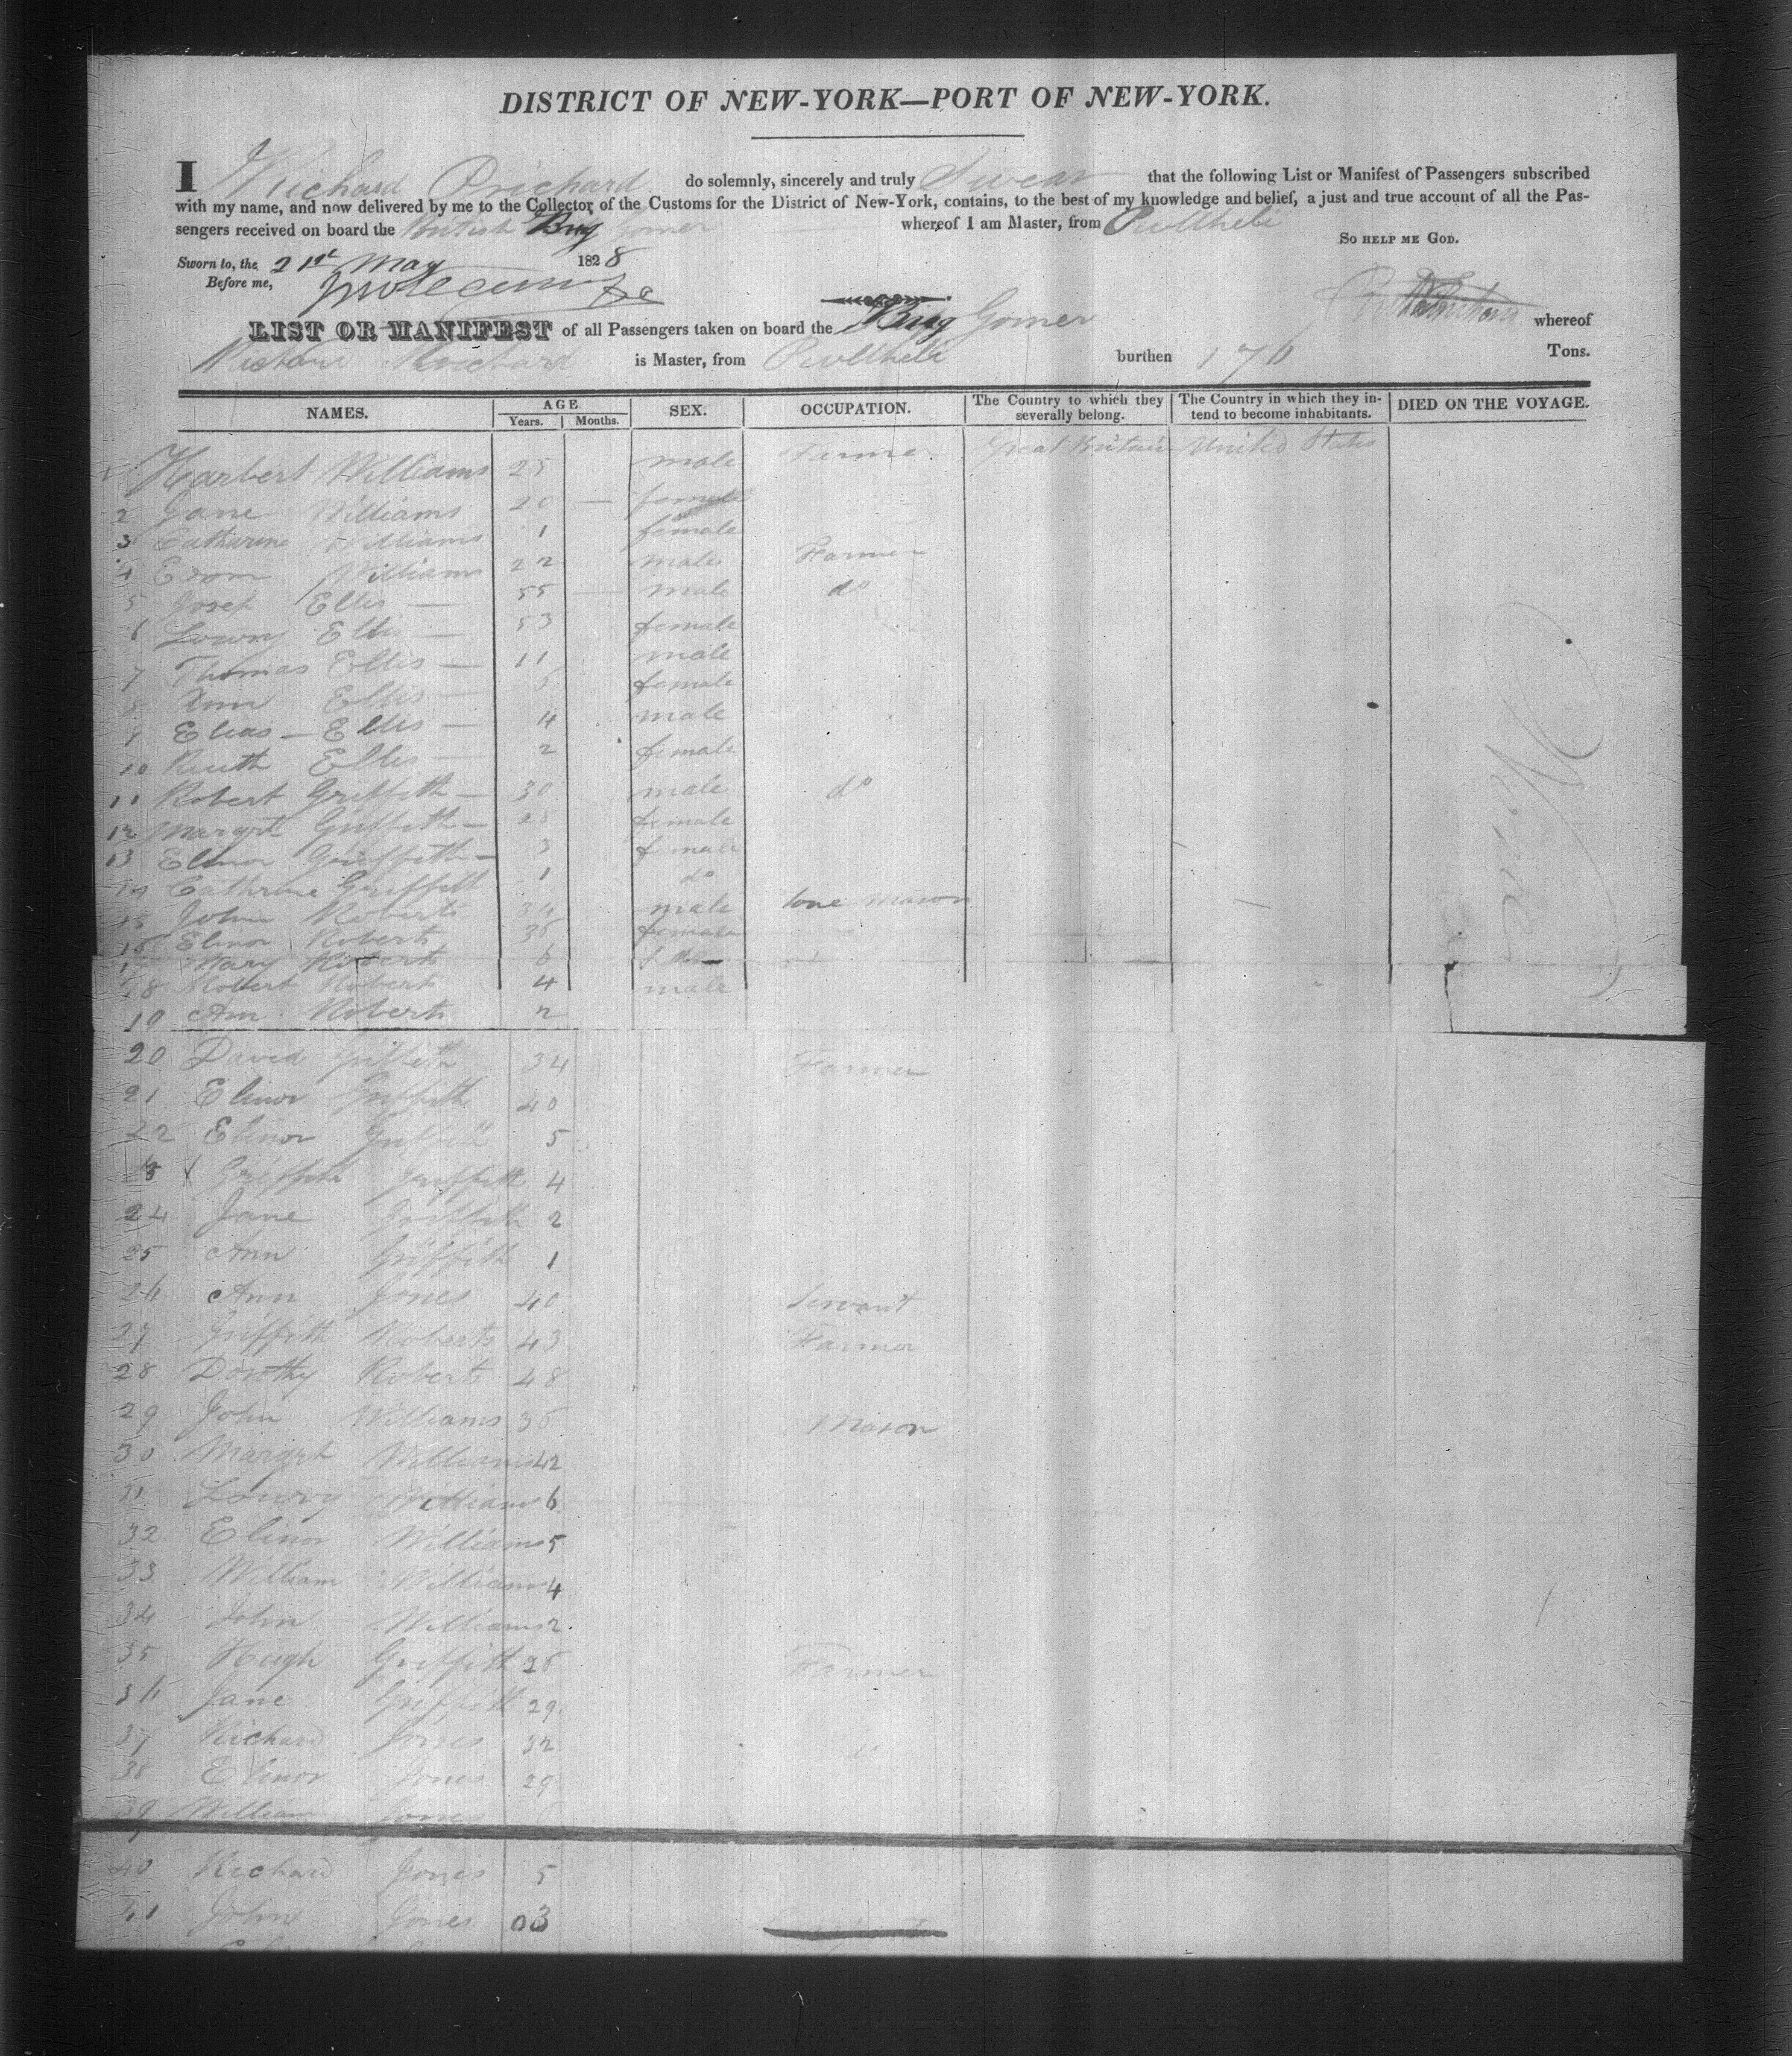 DISTRICT OF NEW-YORK—PORT OF NEW-YORK.
I Richard Prichard do solemnly, sincerely and truly Swear that the following List or Manifest of Passengers subscribed
with my name, and now delivered by me to the Collector of the Customs for the District of New-York, contains, to the best of my knowledge and belief, a just and true account of all the Pas-
sengers received on board the British Brig Gomer whereof I am Master, from Pwllheli
SO HELP ME GOD.
Sworn to, the 21st May 1828
Before me,
LIST OR MANIFEST of all Passengers taken on board the Brig Gomer whereof
Richard Prichard is Master, from Pwllheli burthen 176 Tons.
NAMES. AGE. Years. Months. SEX. OCCUPATION. The Country to which they severally belong. The Country in which they intend to become inhabitants. DIED ON THE VOYAGE.
Harbert Williams 25 male Farmer Great Britain United States
2 Jane Williams 20 — female
3 Catharine Williams 1 female
4 Edom Williams 22 male Farmer
5 Josef Ellis — 55 — male do
6 Lowry Ellis — 53 female
7 Thomas Ellis — 11 male
8 Ann Ellis — 6 female
9 Elias — Ellis — 4 male
10 Ruth Ellis — 2 female
11 Robert Griffith — 30 male do
12 Margrt Griffith — 28 female
13 Elinor Griffith — 3 female
14 Cathrine Griffith 1 do
15 John Roberts 34 male tone Mason
16 Elinor Roberts 36 female
Mary Roberts 6
18 Robert Roberts 4 male
19 Ann Roberts 2
20 David Griffith 34 Farmer
21 Elinor Griffith 40
22 Elinor Griffith 5
Griffith Griffith 4
24 Jane Griffith 2
25 Ann Griffith 1
26 Ann Jones 40 Servant
27 Griffith Roberts 43 Farmer
28 Dorothy Roberts 48
29 John Williams 36 Mason
30 Margrt Williams 42
31 Lowry Williams 6
32 Elinor Williams 5
33 William Williams 4
34 John Williams 2
35 Hugh Griffith 26 Farmer
36 Jane Griffith 29
37 Richard Jones 32
38 Elinor Jones 29
39 William Jones
40 Richard Jones 5
41 John Jones 03